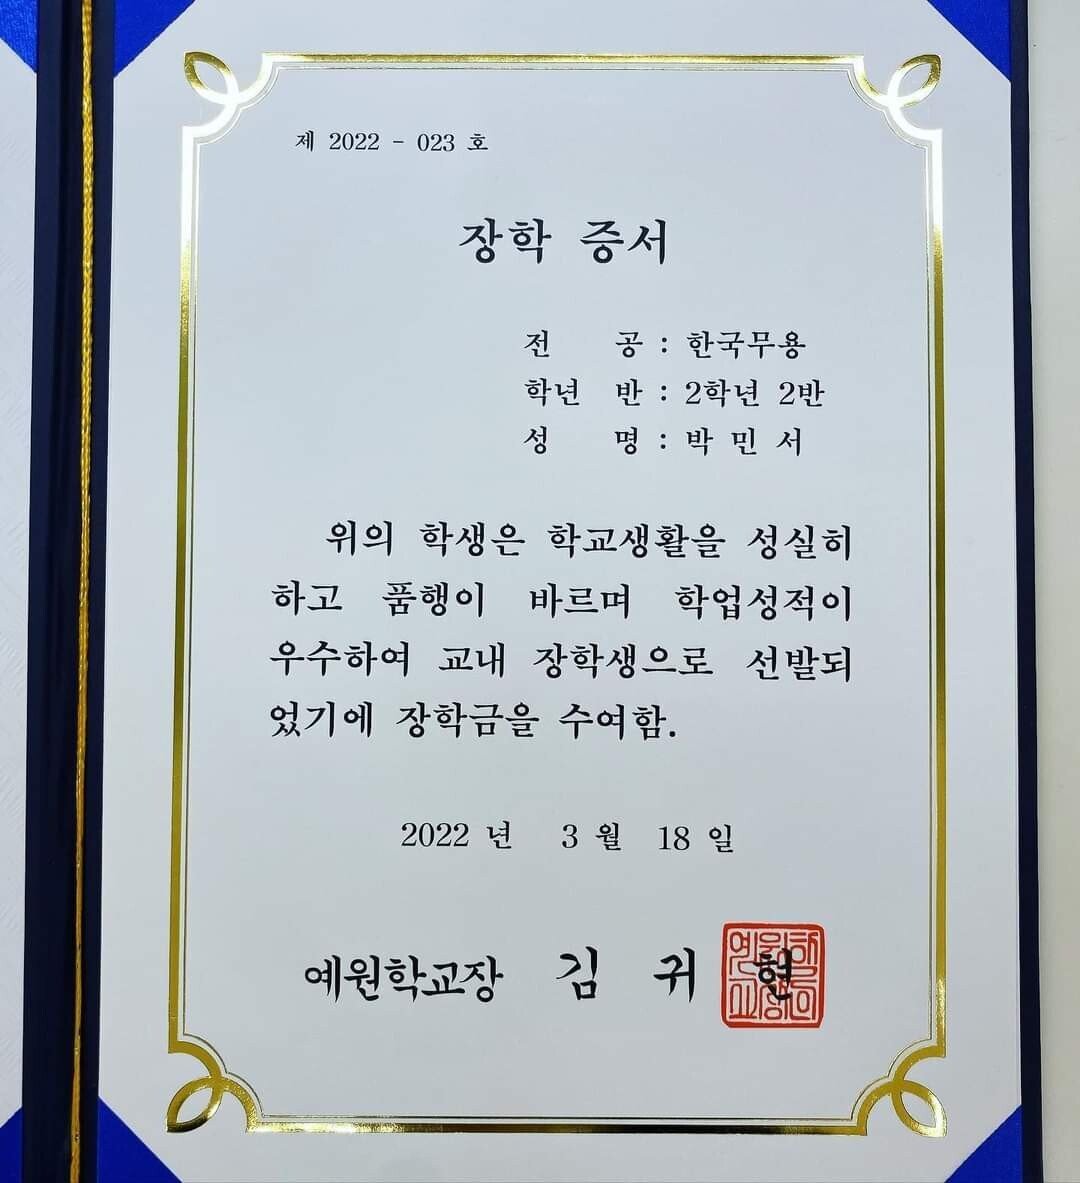 제 2022 - 023 호
장학 증서
전 공 : 한국무용
학년 반 : 2학년 2반
성 명 : 박 민 서
위의 학생은 학교생활을 성실히
하고 품행이 바르며 학업성적이
우수하여 교내 장학생으로 선발되
었기에 장학금을 수여함.
2022 년 3 월 18 일
예원학교장 김 귀 현